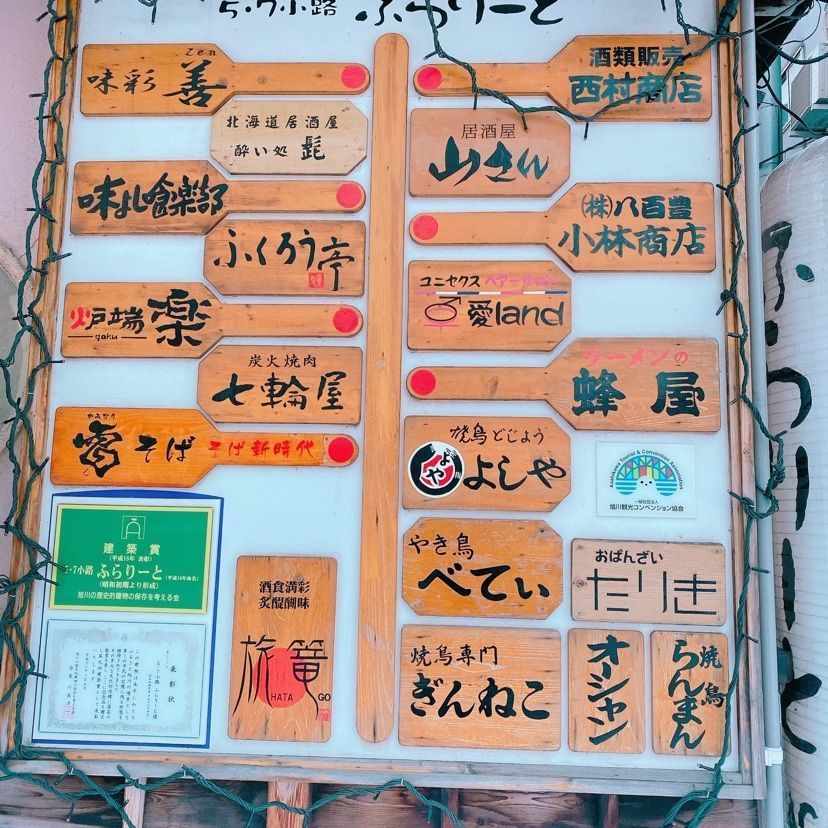 5・7小路 ふらりーと
Zen
味彩 善
北海道居酒屋
酔い処 髭
味よし喰楽部
ふくろう亭
炉端 楽
gaku
炭火焼肉
七輪屋
かみなり
雷そば そば新時代
建築賞
(平成18年 表彰)
5・7小路 ふらりーと (平成16年命名)
(昭和初期より形成)
旭川の歴史的建物の保存を考える会
表彰状
5・7小路 ふらりーと様
酒食満彩
炙醍醐味
旅篭
HATA
GO
酒類販売
西村商店
居酒屋
山さん
㈱八百豊
小林商店
ユニセクス ヘアーサロン
愛land
ラーメンの
蜂屋
焼鳥どじょう
よしや
よしや
Asahikawa Tourist & Convention Association
一般社団法人
旭川観光コンベンション協会
やき鳥
べてぃ
おばんざい
たりき
焼鳥専門
ぎんねこ
オーシャン
焼鳥
らんまん
ふらりーと